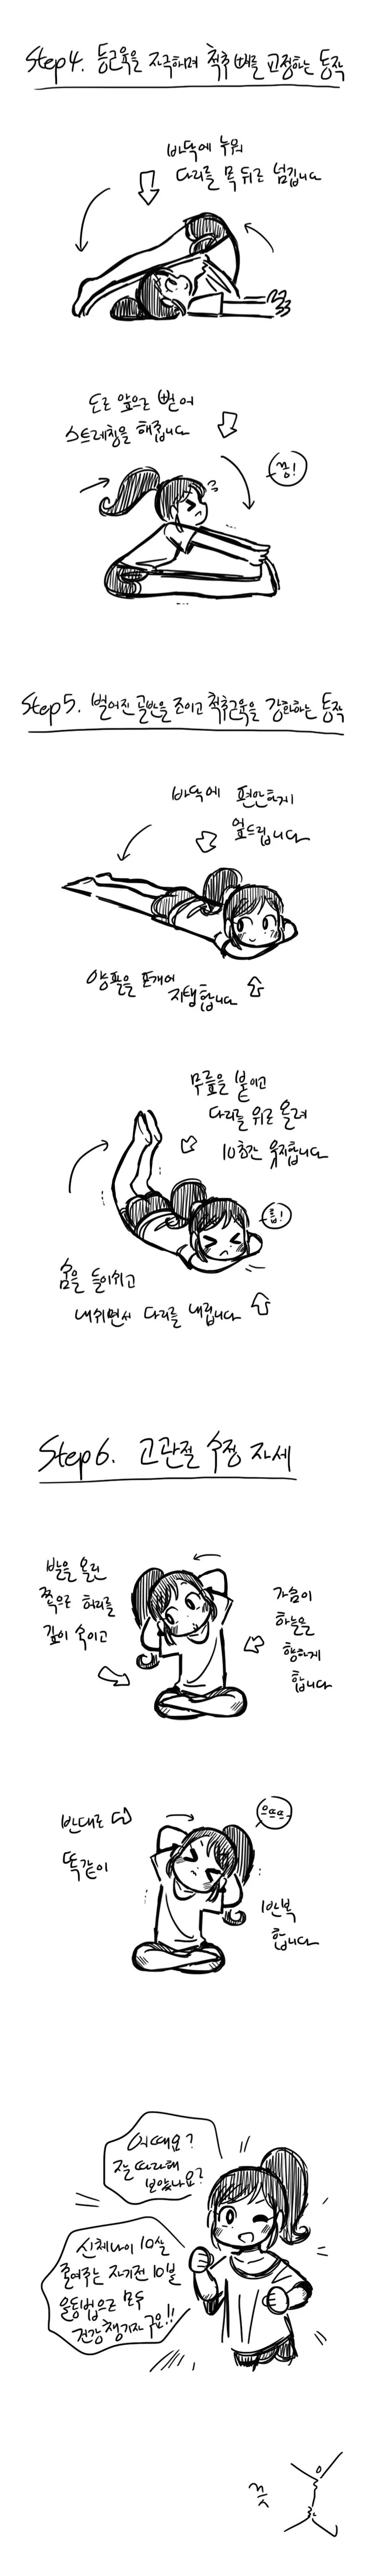 Step 4. 등근육을 자극하며 척추 뼈를 교정하는 동작
바닥에 누워
다리를 목 뒤로 넘깁니다
도로 앞으로 뻗어
스트레칭을 해줍니다
쭝!
Step 5. 벌어진 골반을 조이고 척추근육을 강화하는 동작
바닥에 편안하게
엎드립니다
양팔을 포개어
지탱합니다
무릎을 붙이고
다리를 위로 올려
10초간 유지합니다
흡!
숨을 들이쉬고
내쉬면서 다리를 내립니다
Step 6. 고관절 수정 자세
발을 올린
쪽으로 허리를
깊이 숙이고
가슴이
하늘을
향하게
합니다
반대로
똑같이
으쯔쯔
반복
합니다
어때요?
잘 따라해
보았나요?
신체나이 10살
줄여주는 자기전 10분
운동법으로 모두
건강 챙기자구요!!
끗